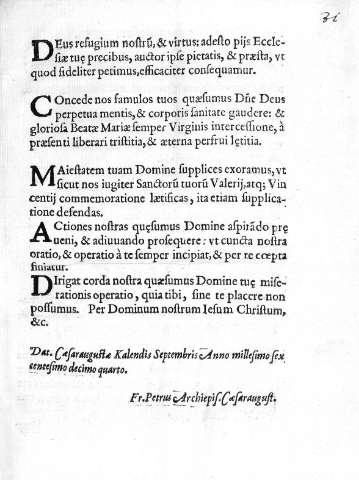 31
DEus refugium nostrũ, & virtus: adesto pijs Eccle-
siæ tuę precibus, auctor ipse pietatis, & præsta, vt
quod fideliter petimus, efficaciter consequamur.
COncede nos famulos tuos quæsumus Dñe Deus
perpetua mentis, & corporis sanitate gaudere: &
gloriosa Beatæ Mariæ semper Virginis intercessione, à
præsenti liberari tristitia, & æterna perfrui lętitia.
MAiestatem tuam Domine supplices exoramus, vt
sicut nos iugiter Sanctorũ tuorũ Valerij, atq; Vin
centij commemoratione lætificas, ita etiam supplica-
tione defendas.
ACtiones nostras quęsumus Domine aspirãdo prę
ueni, & adiuuando prosequere: vt cuncta nostra
oratio, & operatio à te semper incipiat, & per te cœpta
finiatur.
DIrigat corda nostra quæsumus Domine tuę mise-
rationis operatio, quia tibi, sine te placere non
possumus. Per Dominum nostrum Iesum Christum,
&c.
Dat. Cæsaraugustæ Kalendis Septembris Anno millesimo sex
centesimo decimo quarto.
Fr. Petrus Archiepis. Cæsaraugust.